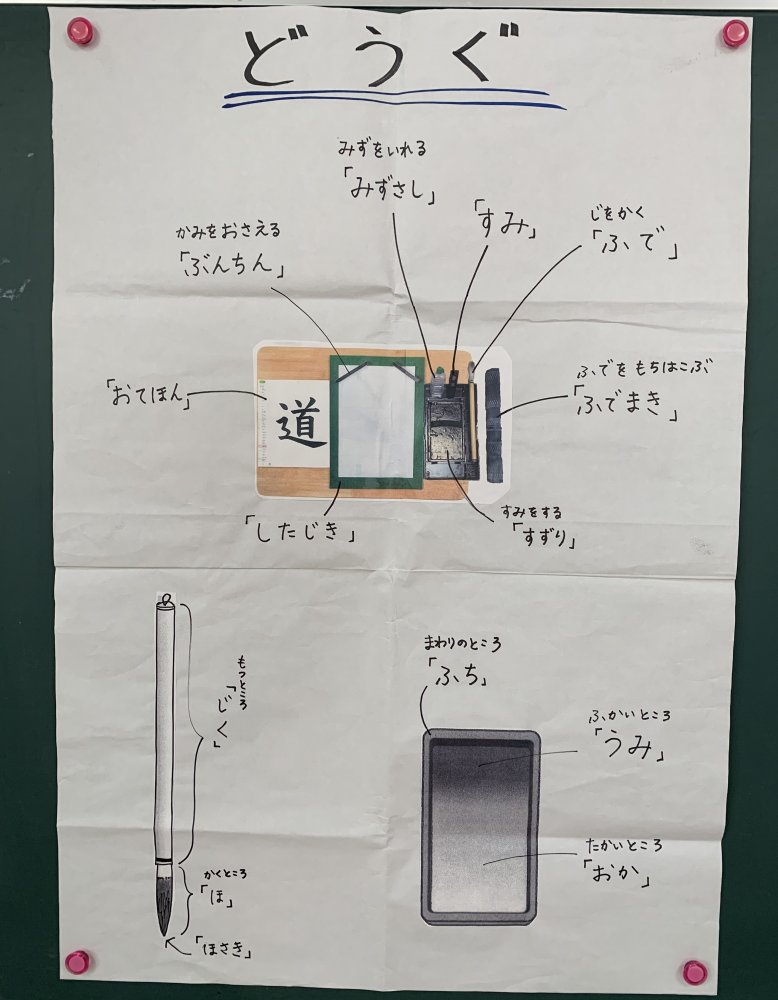 どうぐ
みずをいれる
「みずさし」
「すみ」
じをかく
「ふで」
かみをおさえる
「ぶんちん」
「おてほん」
道
ふでをもちはこぶ
「ふでまき」
「したじき」
すみをする
「すずり」
もつところ
「じく」
かくところ
「ほ」
「ほさき」
まわりのところ
「ふち」
ふかいところ
「うみ」
たかいところ
「おか」